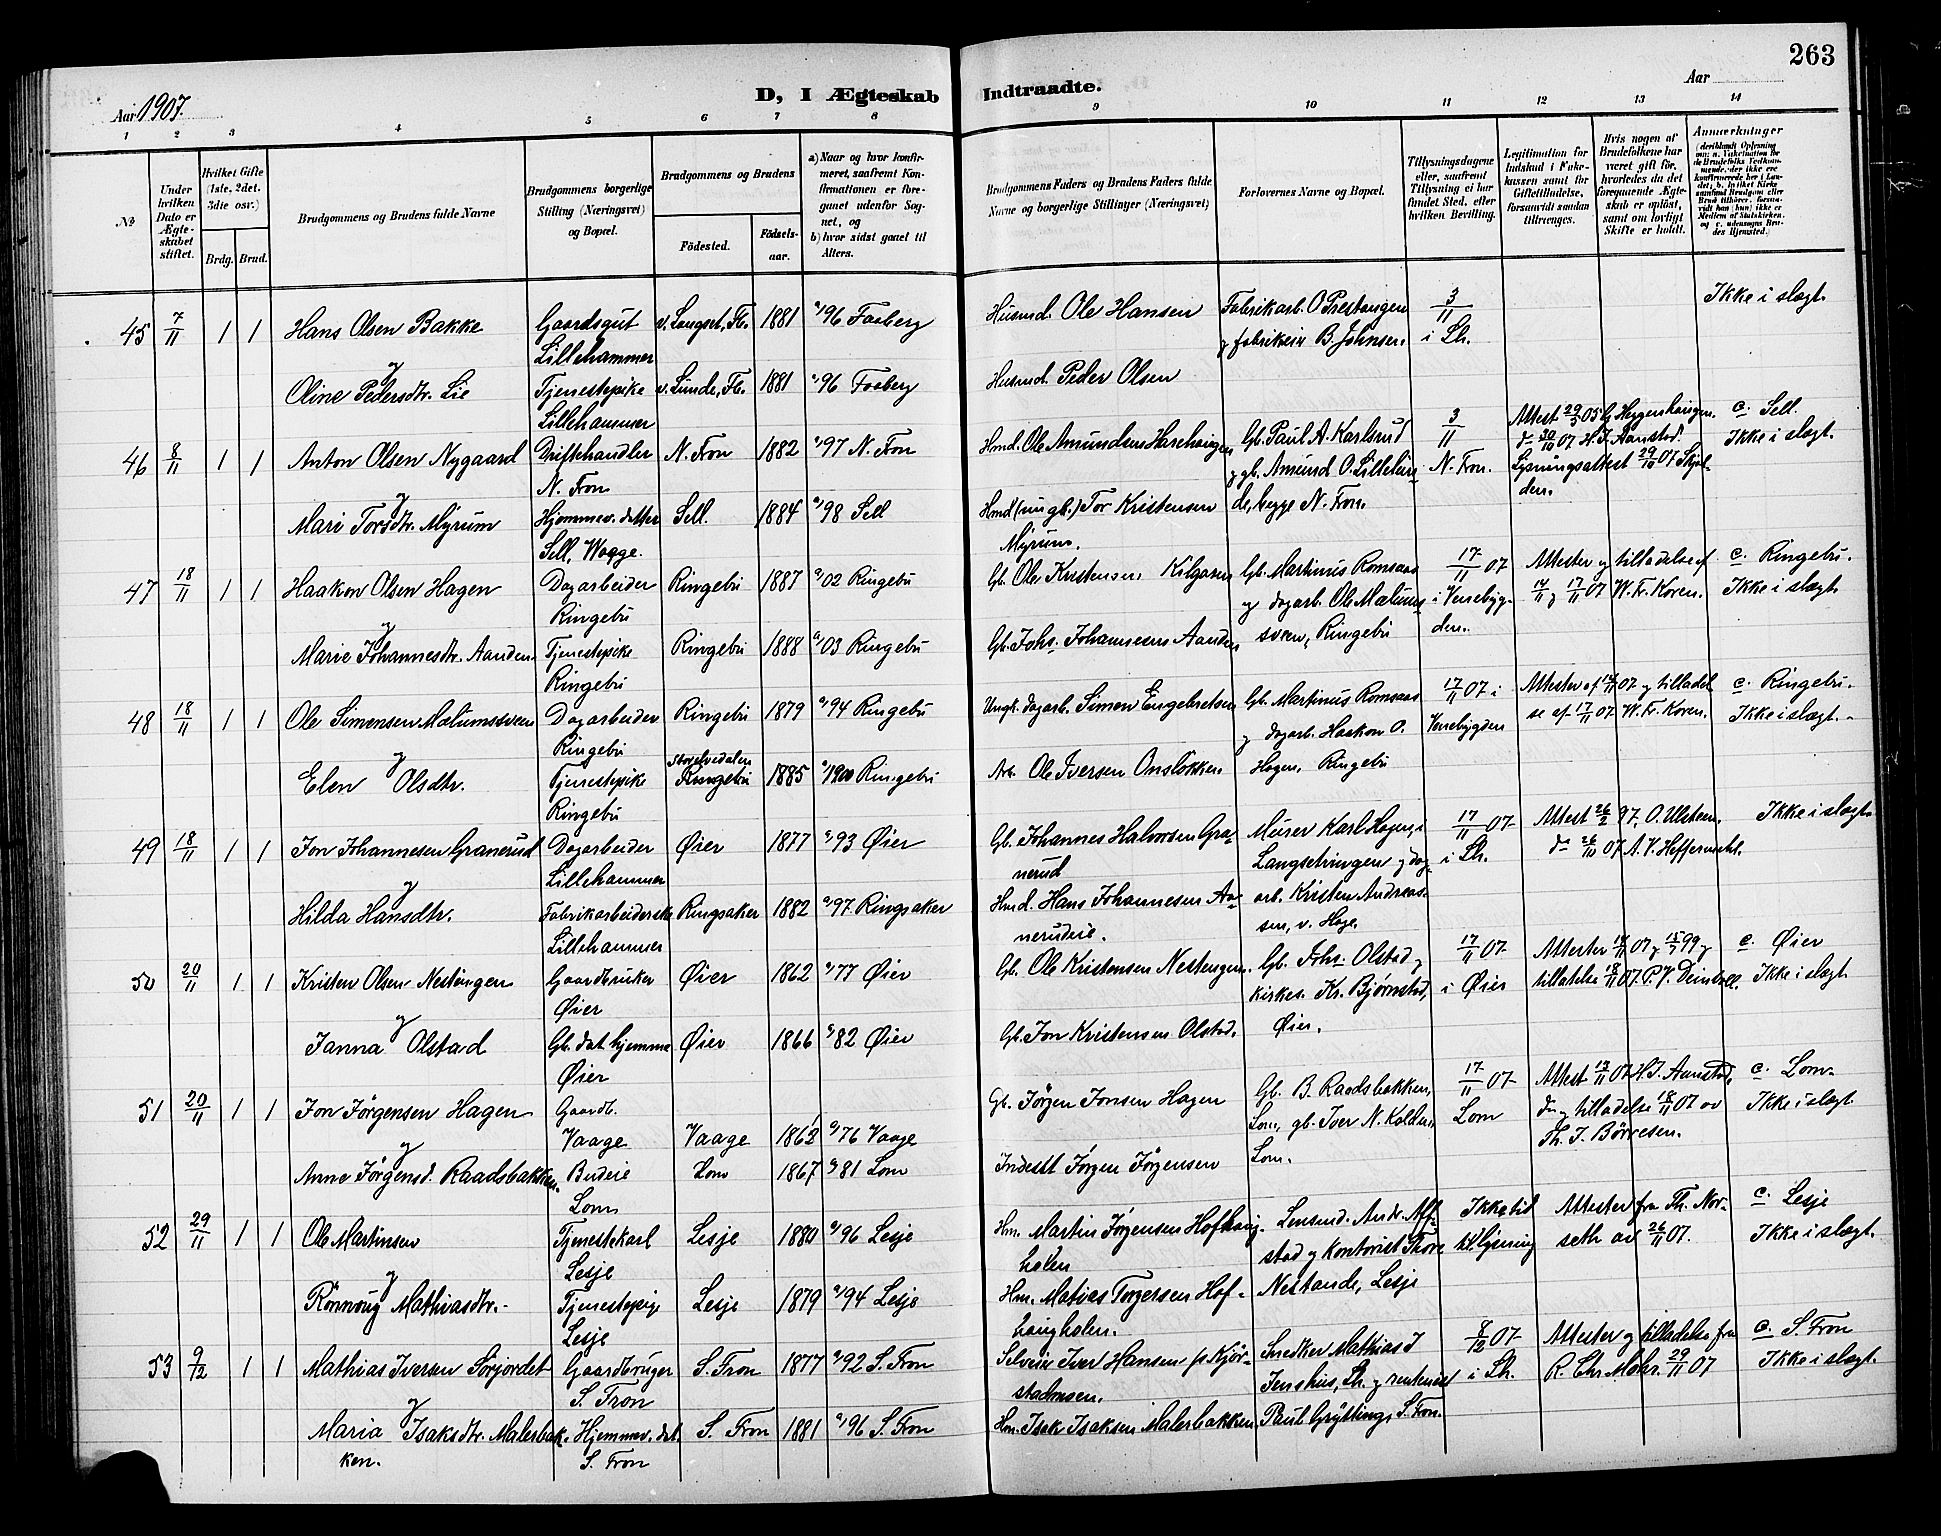 263
D, I Ægteskab Indtraadte.
Aar 1907.
Aar
1 2 3 4 5 6 7 8 9 10 11 12 13 14
№
Under hvilken Dato er Ægteskabet stiftet.
Hvilket Gifte (1ste, 2det, 3die osv.)
Brdg. Brud.
Brudgommens og Brudens fulde Navne
Brudgommens borgerlige Stilling (Næringsvei) og Bopæl.
Brudgommens og Brudens
Födested.
Födsels-aar.
a) Naar og hvor konfirmeret, saafremt Konfirmationen er foregaaet udenfor Sognet, og
b) hvor sidst gaaet til Alters.
Brudgommens Faders og Brudens Faders fulde Navne og borgerlige Stillinger (Næringsvei)
Forlovernes Navne og Bopæl.
Tillysningsdagene eller, saafremt Tillysning ei har fundet Sted, efter hvilken Bevilling.
Legitimation for Indskud i Enkekassen samt for Giftetilladelse, forsaavidt saadan tiltrænges.
Hvis nogen af Brudefolkene har været gift før, hvorledes da det foregaaende Ægteskab er oplöst, samt om lovligt Skifte er holdt.
Anmærkninger
45 7/11 1 1 Hans Olsen Bakke Gaardsgut v. Langset, Fb. 1881 96 Faaberg Husmd. Ole Hansen Fabrikarb. O Prestangen 3/11 Ikke i slægt.
Lillehammer & fabrikeier B. Johnsen. i Lh.
og
Oline Pedersdtr. Lie Tjenestepike v. Lunde, Fb. 1881 96 Faaberg Husmd. Peder Olsen
Lillehammer
46 8/11 1 1 Anton Olsen Nygaard Driftehandler N. Fron 1882 97 N. Fron Hmd. Ole Amundsen Harehaugen Gb. Paul A. Karlsrud 3/11 Attest 29/3 05 Heggenhaugen. c. Sell.
N. Fron & gb. Amund O. Lillelien N. Fron. do 30/10 07 H. J. Aanstad. Ikke i slægt.
og de, begge N. Fron. Lysningsattest 29/10 07 Skjelden.
Mari Torsdtr. Myrum Hjemmev. datter Sell. 1884 98 Sell Hmd (ungk.) Tor Kristensen
Sell, Waage. Myrum.
47 18/11 1 1 Haakon Olsen Hagen Dagarbeider Ringebu 1887 02 Ringebu Gb. Ole Kristensen Kilgaren Gb. Martinus Romsaas 17/11 07 Attester og tilladelse af c. Ringebu.
Ringebu og dagarb. Ole Mælums i Venebygden. 14/11 & 17/11 07 W. Fr. Koren. Ikke i slægt
og
Marie Johannesdtr. Aanden. Tjenestepike Ringebu 1888 03 Ringebu Gb. Johs. Johannesen Aanden sveen, Ringebu
Ringebu
48 18/11 1 1 Ole Simensen Mælumssveen Dagarbeider Ringebu 1879 94 Ringebu Ungk. dagarb. Simen Engebretsen Gb. Martinus Romsaas 17/11 07 i Attester af 14/11 07 og tilladel c. Ringebu.
Ringebu og dagarb. Haakon O. Venebygden se af 17/11 07 W. Fr. Koren. Ikke i slægt.
og Storelvedalen
Elen Olsdtr. Tjenestepike Ringebu 1885 1900 Ringebu Arb. Ole Iversen Onsløkken Hagen, Ringebu
Ringebu
49 18/11 1 1 Jon Johannesen Granerud Dagarbeider Øier 1877 93 Øier Gb. Johannes Halvorsen Gra- Murer Karl Hagen, i 17/11 07 Attest 26/2 97. O. Ulsteen. Ikke i slægt.
Lillehammer nerud Langsetvingen & dag- i Lh. do 26/10 07 A. V. Heffermehl.
og
Hilda Hansdtr. Fabrikarbeiderske Ringsaker 1882 97 Ringsaker Hmd. Hans Johannesen Aa- arb. Kristen Andreas-
Lillehammer nerudeie. sen, v. Hage.
50 20/11 1 1 Kristen Olsen Nestingen Gaardbruker Øier 1862 77 Øier Gb. Ole Kristensen Nestengen. Gb. Johs. Olstad & 17/11 07 Attester 18/11 07 & 15/7 99 & c. Øier
Øier kirkes. Kr. Bjørnstad, i Øier tillatelse 18/11 07. P. V. Deinboll. Ikke i slægt
og
Janna Olstad Gb. dat. hjemme Øier 1866 82 Øier Gb. Jon Kristensen Olstad. Øier.
Øier
51 20/11 1 1 Jon Jørgensen Hagen Gaardb. Gb. Jørgen Jonsen Hagen Gb. B. Raadsbakken, 17/11 07 Attest 12/11 07 H. J. Aanstad. c. Lom.
Vaage Vaage 1863 76 Vaage Lom, gb. Iver N. Kolden Lom do og tilladelse 18/11 07 av Ikke i slægt
og Th. J. Børresen.
Anne Jørgensd. Raadsbakken. Budeie Lom 1867 81 Lom Inderst Jørgen Jørgensen Lom.
Lom
52 29/11 1 1 Ole Martinsen Tjenestekarl Lesje 1880 96 Lesje Hm. Martin Jørgensen Hofhaug- Lensmd. Andr. Aff- Ikke tid Attester fra Th. Nor- c. Lesje
Lesje holen stad og kontorist Thore til lysning seth av 26/11 07. Ikke i slægt.
og
Rønnaug Mathiasdtr. Tjenestepige Lesje 1879 94 Lesje Hm. Matias Torgersen Hof- Nestande, Lesje
Lesje haugholen.
53 9/12 1 1 Mathias Iversen Sørjordet Gaardbruger S. Fron 1877 92 S. Fron Selveier Iver Hansen Kjør- Snedker Mathias J 8/12 07 Attester og tilladelse fra c. S. Fron
S. Fron stadmoen. Jenshus, Lh. & rentenist i Lh. R. Chr. Mohr. 29/11 07 Ikke i slægt.
og
Maria Isaksdtr. Malerbak- Hjemmev. dat. S. Fron 1881 96 S. Fron Hm. Isak Isaksen Malerbakken Paul Grytting, S. Fron.
ken. S. Fron